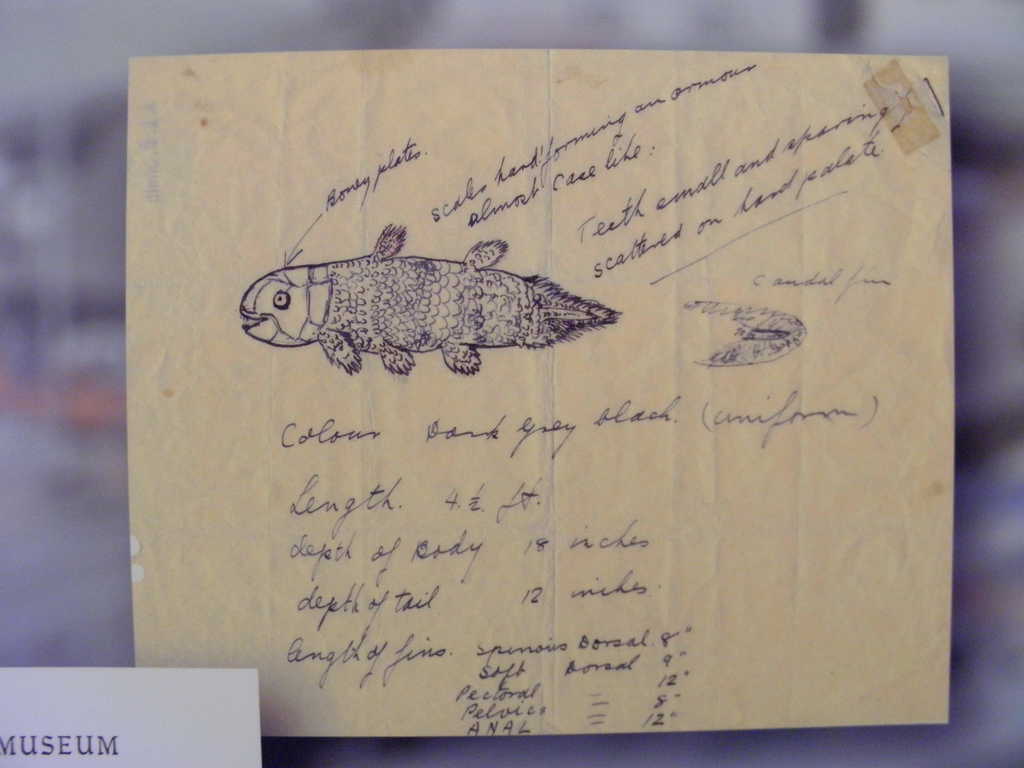 Boney plates.
scales hard! forming an armour
almost case like:
Teeth small and sparing
scattered on hard palate
Caudal fin
Colour Dark Grey black. (uniform)
Length. 4.½. ft.
depth of Body 18 inches
depth of tail 12 inches.
length of fins. Spinous Dorsal. 8"
Soft Dorsal 9"
Pectoral = 12"
Pelvic = 8"
ANAL = 12"
MUSEUM